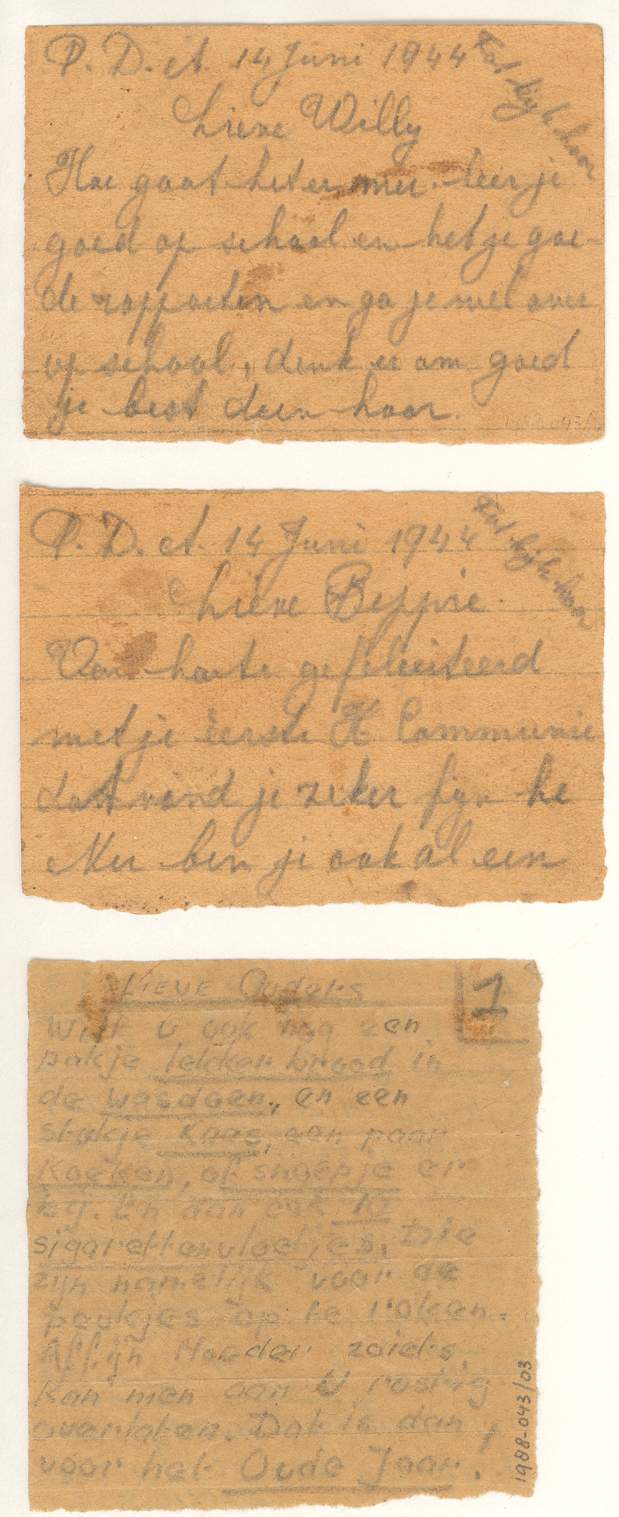 P. D. A. 14 Juni 1944
Lieve Willy
Hoe gaat het er mee. leer je
goed op school en heb je goe-
de rapporten en ga je wel over
op school, denk er om goed
je best doen hoor.
P. D. A. 14 Juni 1944
Lieve Beppie
Van harte gefeliciteerd
met je eerste H Communie
dat vond je zeker fijn he
Nu ben je ook al een
1
LIEVE Ouders
Wilt U ook nog een
pakje lekker brood in
de wasdoen, en een
stukje Kaas, een paar
Koeken, of snoepje er
bij. En dan ook 10
sigarettenvloetjes, Die
zijn namelijk voor de
peukjes op te roken.
Affijn Moeder zoiets
Kan men aan U rustig
overlaten. Dat is dan
voor het Oude Jaar.
1988-043/03